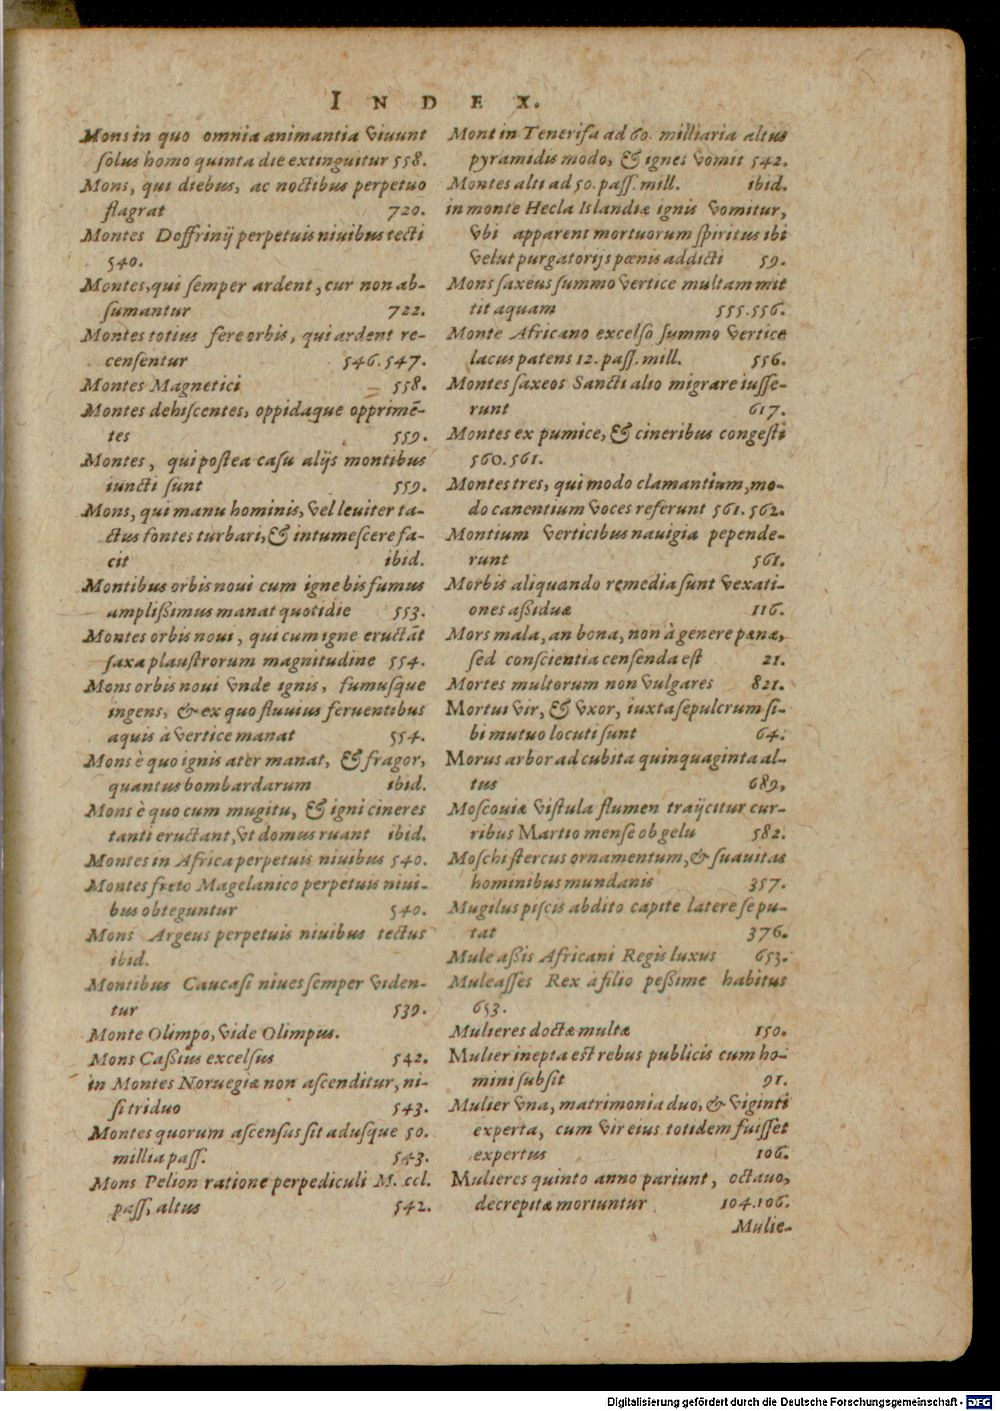 INDEX.
Mons in quo omnia animantia viuunt
ſolus homo quinta die extinguitur 558.
Mons, qui diebus, ac noctibus perpetuo
flagrat 720.
Montes Doffrinij perpetuis niuibus tecti
540.
Montes, qui ſemper ardent, cur non ab-
ſumantur 722.
Montes totius fere orbis, qui ardent re-
cenſentur 546.547.
Montes Magnetici 558.
Montes dehiſcentes, oppidaque opprimē-
tes 559.
Montes, qui poſtea caſu alijs montibus
iuncti ſunt 559.
Mons, qui manu hominis, vel leuiter ta-
ctus fontes turbari, & intumeſcere fa-
cit ibid.
Montibus orbis noui cum igne bis fumus
ampliſſimus manat quotidie 553.
Montes orbis noui, qui cum igne eructāt
ſaxa plauſtrorum magnitudine 554.
Mons orbis noui vnde ignis, fumuſque
ingens, & ex quo fluuius feruentibus
aquis à vertice manat 554.
Mons è quo ignis ater manat, & fragor,
quantus bombardarum ibid.
Mons è quo cum mugitu, & igni cineres
tanti eructant, vt domus ruant ibid.
Montes in Africa perpetuis niuibus 540.
Montes freto Magelanico perpetuis niui-
bus obteguntur 540.
Mons Argeus perpetuis niuibus tectus
ibid.
Montibus Caucaſi niues ſemper viden-
tur 539.
Monte Olimpo, vide Olimpus.
Mons Caſſius excelſus 542.
in Montes Noruegiæ non aſcenditur, ni-
ſi triduo 543.
Montes quorum aſcenſus ſit aduſque 50.
millia paſſ. 543.
Mons Pelion ratione perpediculi M. ccl.
paſſ, altus 542.
Mont in Tenerifa ad 60. milliaria altus
pyramidis modo, & ignes vomit 542.
Montes alti ad 50. paſſ. mill. ibid.
in monte Hecla Islandiæ ignis vomitur,
vbi apparent mortuorum ſpiritus ibi
velut purgatorijs pœnis addicti 59.
Mons ſaxeus ſummo vertice multam mit
tit aquam 555.556.
Monte Africano excelſo ſummo vertice
lacus patens 12. paſſ. mill. 556.
Montes ſaxeos Sancti alio migrare iuſſe-
runt 617.
Montes ex pumice, & cineribus congeſti
560.561.
Montes tres, qui modo clamantium, mo-
do canentium voces referunt 561.562.
Montium verticibus nauigia pepende-
runt 561.
Morbis aliquando remedia ſunt vexati-
ones aſſiduæ 116.
Mors mala, an bona, non à genere pænæ,
ſed conſcientia cenſenda eſt 21.
Mortes multorum non vulgares 821.
Mortui vir, & vxor, iuxta ſepulcrum ſi-
bi mutuo locuti ſunt 64.
Morus arbor ad cubita quinquaginta al-
tus 689,
Moſcouiæ viſtula flumen traijcitur cur-
ribus Martio menſe ob gelu 582.
Moſchi ſtercus ornamentum, & ſuauitas
hominibus mundanis 357.
Mugilus piſcis abdito capite latere ſe pu-
tat 376.
Mule aſſis Africani Regis luxus 653.
Muleaſſes Rex à filio peſſime habitus
653.
Mulieres doctæ multæ 150.
Mulier inepta eſt rebus publicis cum ho-
mini ſubſit 91.
Mulier vna, matrimonia duo, & viginti
experta, cum vir eius totidem fuiſſet
expertus 106.
Mulieres quinto anno pariunt, octauo,
decrepitæ moriuntur 104.106.
Mulie-
Digitalisierung gefördert durch die Deutsche Forschungsgemeinschaft - DFG